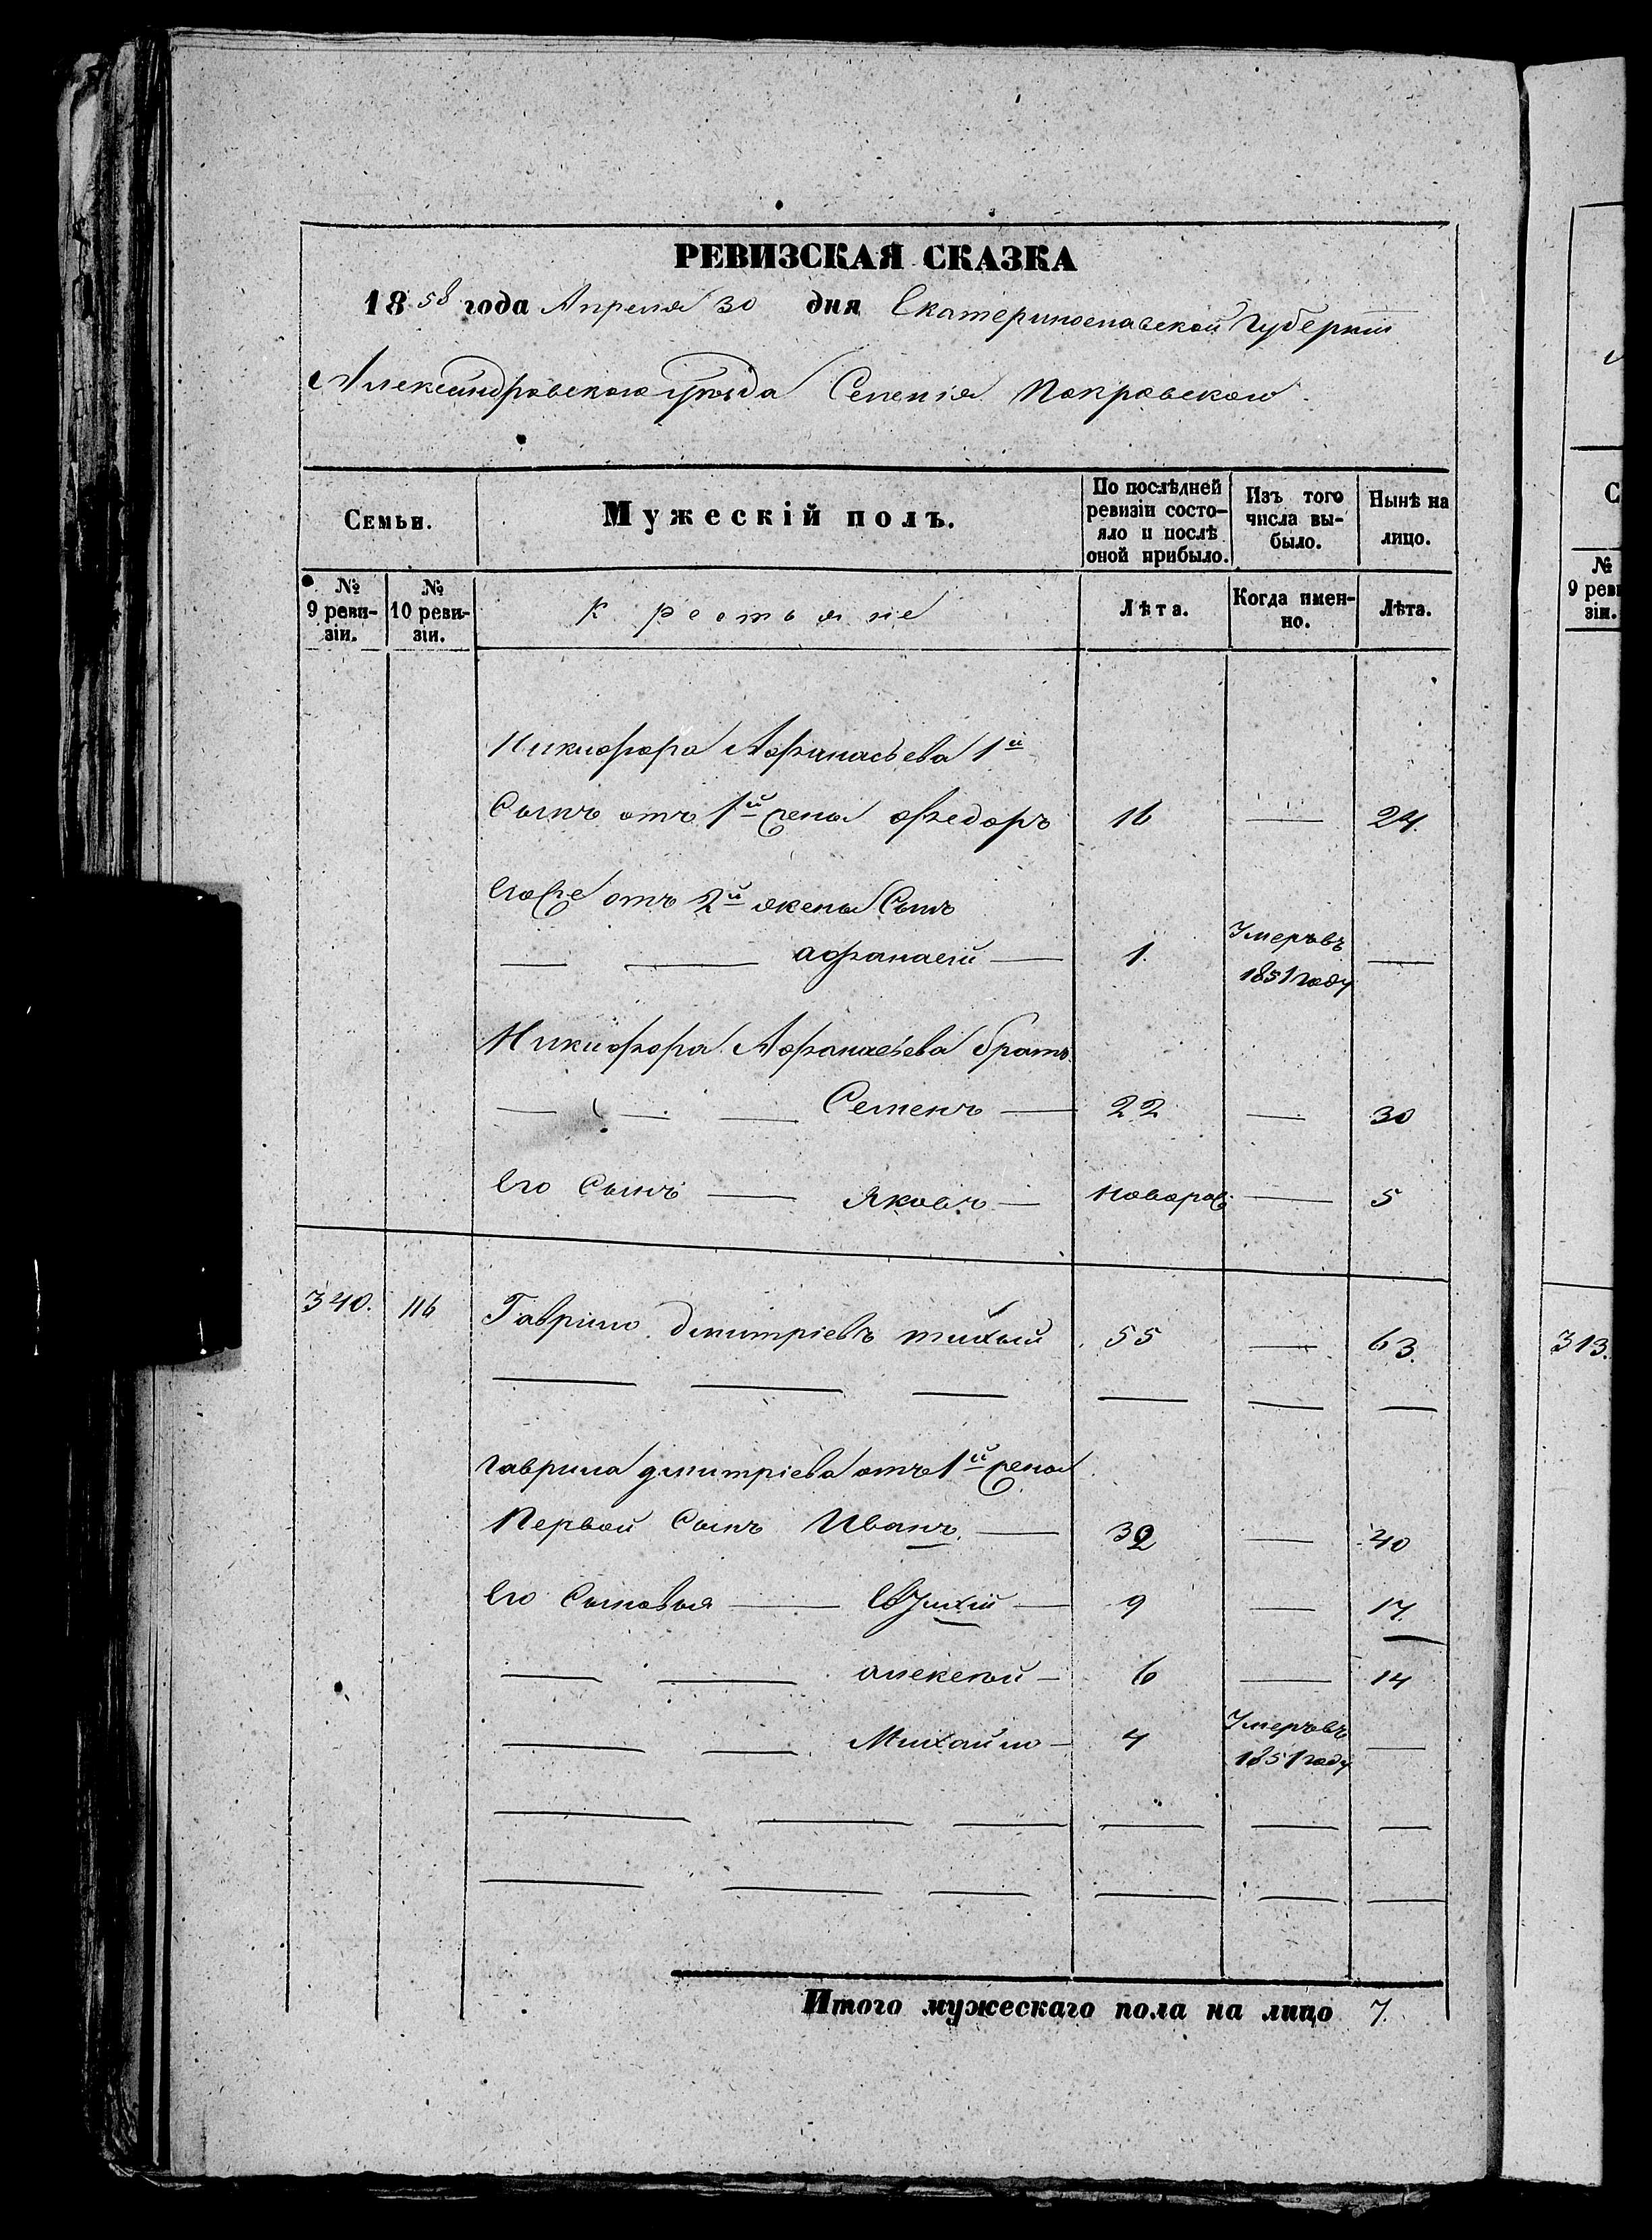 РЕВИЗСКАЯ СКАЗКА
1858 года Апреля 30 дня Екатеринославской Губерніи
Александровского уезда Селенія Покровского
Семьи. Мужескій полъ. По послѣдней ревизіи состояло и послѣ оной прибыло. Изъ того числа выбыло. Нынѣ на лицо.
№ 9 ревизіи. № 10 ревизіи. Крестьяне Лѣта. Когда именно. Лѣта.
Никифора Афанасьева 1й
Сынъ отъ 1й жены Федоръ 16 — 24.
Его же отъ 2й жены Сынъ
— — Афанасій — 1. Умеръ въ 1851 году —
Никифора Афанасьева братъ
— — — Семенъ — 22 — 30
Его Сынъ — Яковъ — новорож — 5
340. 116 Гаврило Дмитріевъ Тихий 55 — 63.
— — — — — —
Гаврила Дмитріева отъ 1й жены
Первой Сынъ Иванъ — 32 — 40
Его Сыновья — — 9 — 17
— — Алексей — 6 — 14
— — Михайло — 4 Умеръ въ 1851 году —
— — — — — —
— — — — — —
Итого мужескаго пола на лицо 7.
С
№
9 реви
зіи.
313.